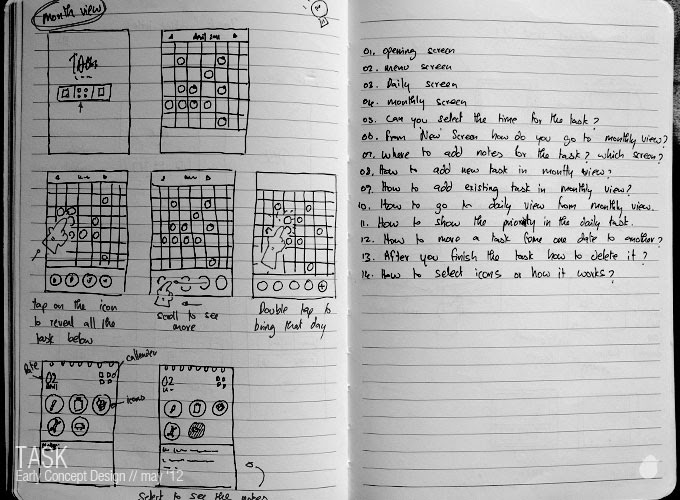 month view
TASK
April 2012
tap on the icon
to reveal all the
task below
Scroll to see
more
Double tap to
bring that day
Date
callender
02
icons
02
Select to see the notes
01. opening screen
02. menu screen
03. Daily screen
04. monthly screen
05. Can you select the time for the task?
06. From 'New' Screen how do you go to monthly view?
07. Where to add notes for the task? which screen?
08. How to add new task in monthly view?
09. How to add existing task in monthly view?
10. How to go to daily view from monthly view.
11. How to show the priority in the daily task.
12. How to move a task from one date to another?
13. After you finish the task how to delete it?
14. How to select icons or how it works?
TASK
Early Concept Design // may '12